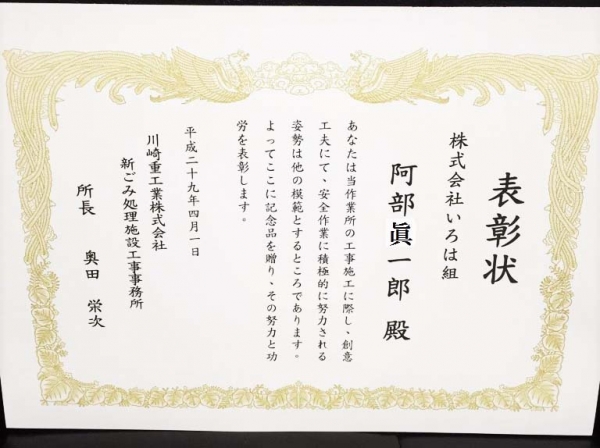 表彰状
株式会社いろは組
阿部眞一郎 殿
あなたは当作業所の工事施工に際し、創意
工夫にて、安全作業に積極的に努力される
姿勢は他の模範とするところであります。
よってここに記念品を贈り、その努力と功
労を表彰します。
平成二十九年四月一日
川崎重工業株式会社
新ごみ処理施設工事事務所
所長 奥田 栄次